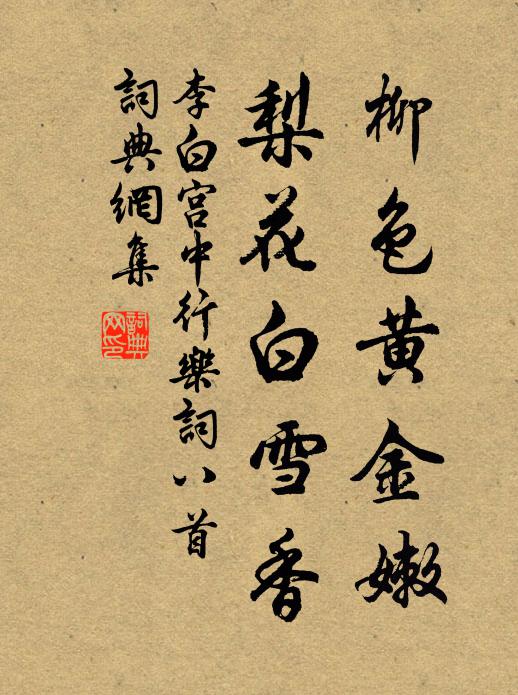 柳色黄金嫩
梨花白雪香
李白宫中行樂詞八首
詞典網集
詞典网印